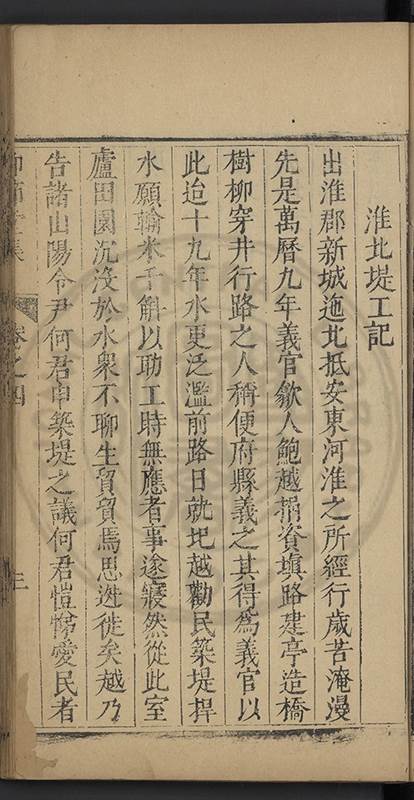 淮北堤工記
出淮郡新城迤北抵安東河淮之所經行歲苦淹漫
先是萬曆九年義官歙人鮑越捐資填路建亭造橋
樹柳穿井行路之人稱便府縣義之其得爲義官以
此迨十九年水更泛濫前路日就圯越勸民築堤捍
水願輸米千斛以助工時無應者事遂寢然從此室
廬田園沉沒於水衆不聊生貿貿焉思迯徙矣越乃
告諸山陽令尹何君申築堤之議何君愷悌愛民者
集 卷之四